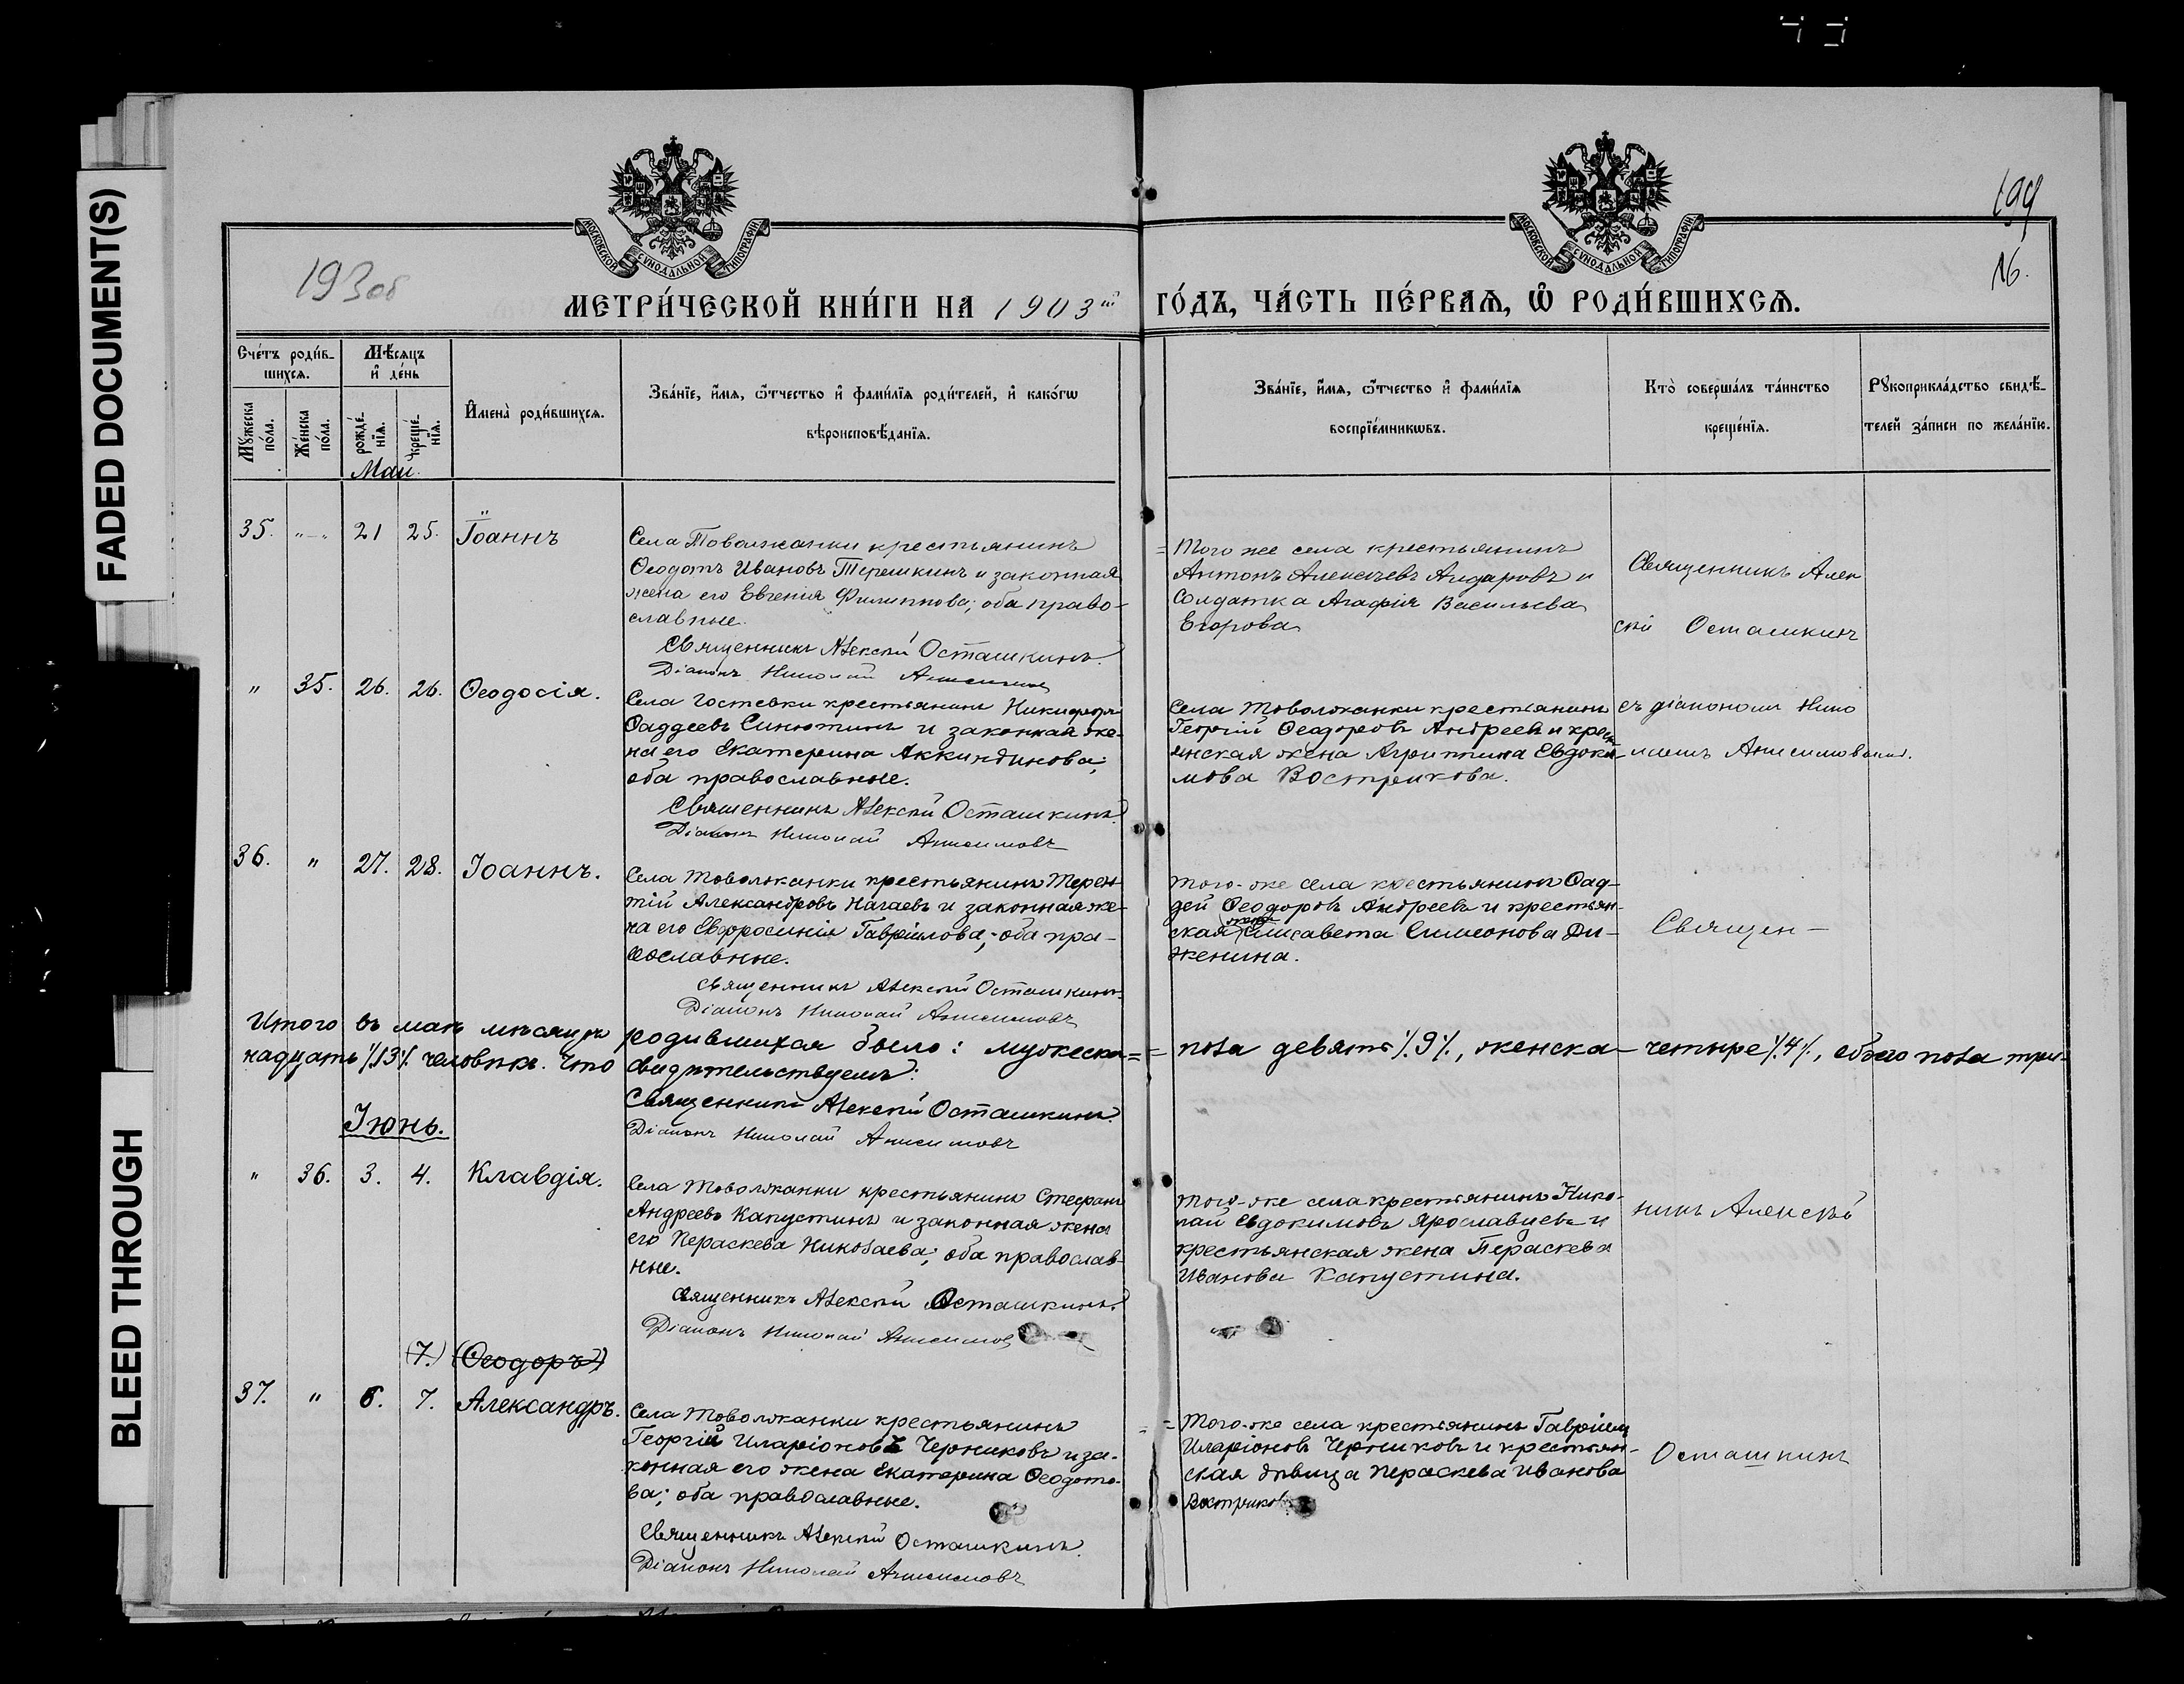 FADED DOCUMENT(S)
BLEED THROUGH
193об
199
16.
МОСКОВСКОЙ СѴНОДАЛЬНОЙ ТИПОГРАФІИ
МОСКОВСКОЙ СѴНОДАЛЬНОЙ ТИПОГРАФІИ
МЕТРИ́ЧЕСКОЙ КНИ́ГИ НА 1903й ГО́ДЪ, ЧА́СТЬ ПЕ́РВАѦ, Ѿ РОДИ́ВШИХСѦ.
Сче́тъ роди́в-
шихсѧ.
Мꙋжеска по́ла.
Же́нска по́ла.
Мѣ́сѧцъ и҆ де́нь
рожде́-нїѧ.
креще́-нїѧ.
И҆мена̀ роди́вшихсѧ.
Зва́нїе, и҆́мѧ, ѻ҆́тчество и҆ фами́лїѧ роди́телей, и҆ како́гѡ
вѣроисповѣ́данїѧ.
Зва́нїе, и҆́мѧ, ѻ҆́тчество и҆ фами́лїѧ
воспрїе́мникѡвъ.
Кто̀ соверша́лъ та́инство
креще́нїѧ.
Рꙋкоприкла́дство свидѣ́-
телей за́писи по жела́нїю.
Май.
35. „—„ 21 25. Іоаннъ
Села Товолжанки крестьянинъ
Ѳеодотъ Ивановъ Терешкинъ и законная
жена его Евгенія Филиппова; оба право-
славные.
Священникъ Алексѣй Осташкинъ.
Діаконъ Николай Анисимовъ
Того же села крестьянинъ
Антонъ Алексѣевъ Андаровъ и
солдатка Агафія Васильева
Егорова
Священникъ Алек
сѣй Осташкинъ
„ 35. 26. 26. Ѳеодосія.
Села Гостевки крестьянинъ Никифоръ
Ѳаддеевъ Синютинъ и законная же-
на его Екатерина Аккиндинова;
оба православные.
Священникъ Алексѣй Осташкинъ.
Діаконъ Николай Анисимовъ
Села Товолжанки крестьянинъ
Георгій Ѳеодоровъ Андреевъ и крест
янская жена Агриппина Евдоки-
мова Вострикова.
съ діакономъ Нико
лаемъ Анисимовымъ.
36. „ 27. 28. Іоаннъ.
Села Товолжанки крестьянинъ Терен-
тій Александровъ Нагаевъ и законная же-
на его Евфросинія Гавріилова; оба пра-
вославные.
Священникъ Алексѣй Осташкинъ.
Діаконъ Николай Анисимовъ
Того-же села крестьянинъ Ѳад-
дей Ѳеодоровъ Андреевъ и крестьян-
ская Елисавета Симеонова Ди-
женина.
Священ-
Итого въ маѣ мѣсяцѣ родившихся было: мужеска пола девять /.9/., женска четыре /.4/., обоего пола три-
надцать /.13/. человѣкъ. Что свидѣтельствуемъ:
Священникъ Алексѣй Осташкинъ.
Діаконъ Николай Анисимовъ
Іюнь.
„ 36. 3. 4. Клавдія.
Села Товолжанки крестьянинъ Стефанъ
Андреевъ Капустинъ и законная жена
его Параскева Николаева; оба православ-
ные.
Священникъ Алексѣй Осташкинъ.
Діаконъ Николай Анисимов
Того-же села крестьянинъ Нико-
лай Евдокимовъ Ярославцевъ и
крестьянская жена Параскева
Иванова Капустина.
никъ Алексѣй
(7.) (Ѳеодоръ)
37. „ 6. 7. Александръ.
Села Товолжанки крестьянинъ
Георгій Иларіоновъ Черниковъ и за-
конная его жена Екатерина Ѳеодото-
ва; оба православные.
Священникъ Алексѣй Осташкинъ.
Діаконъ Николай Анисимовъ
Того-же села крестьянинъ Гавріилъ
Иларіоновъ Черниковъ и крестьян-
ская дѣвица Параскева Иванова
Востриков
Осташкинъ